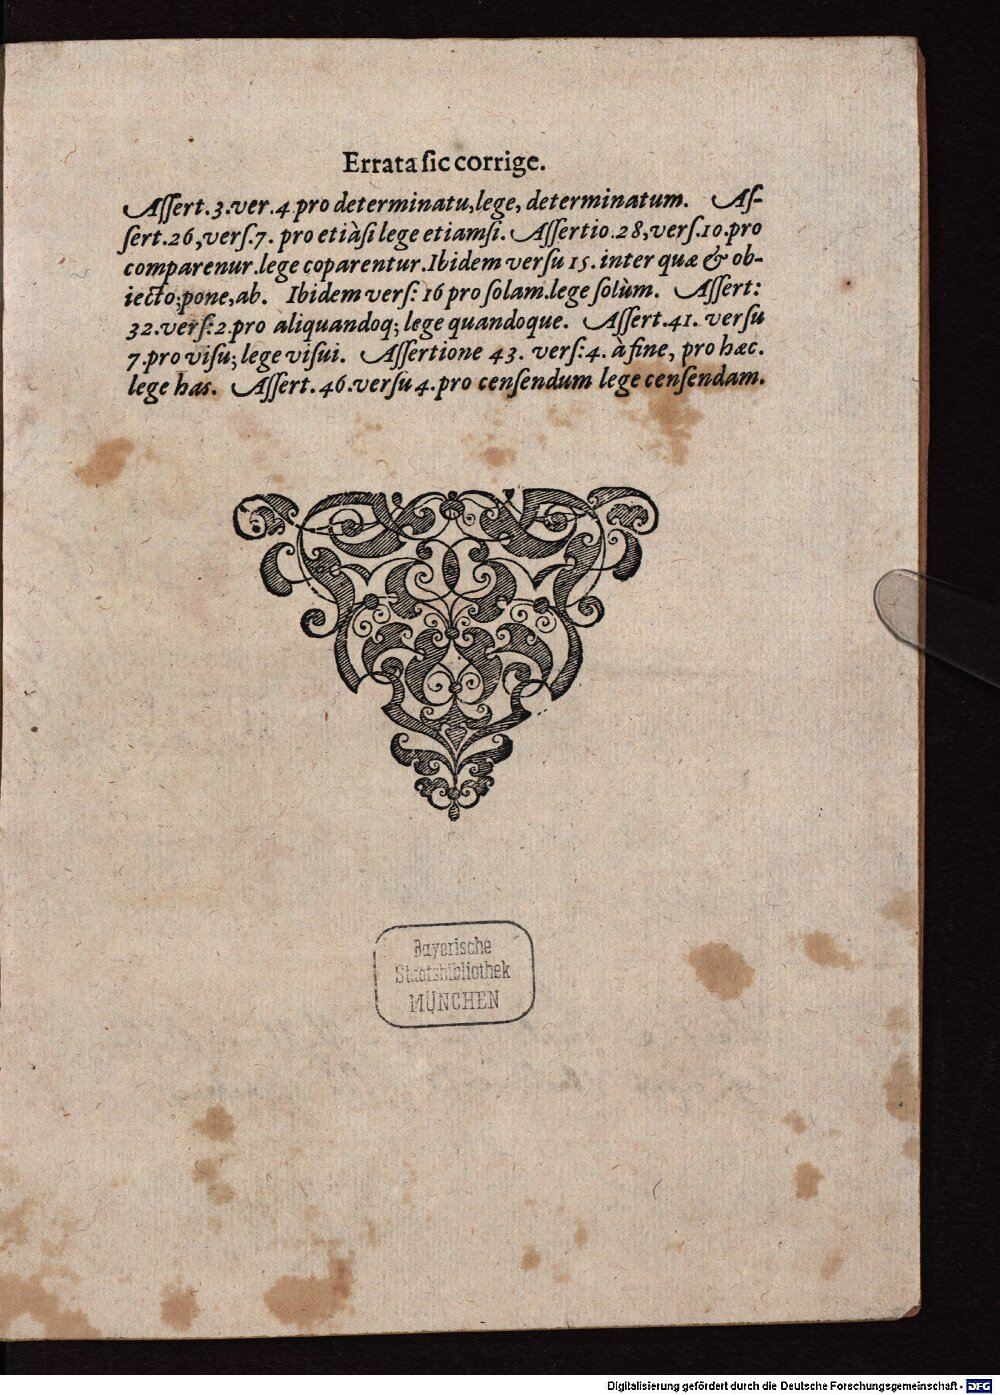 Errata ſic corrige.
Aſſert.3.ver.4.pro determinatu,lege, determinatum. Aſ-
ſert.26,verſ.7. pro etiàſi lege etiamſi. Aſſertio.28,verſ.10.pro
comparenur.lege coparentur.Ibidem verſu 15.inter quæ & ob-
iecto;pone,ab. Ibidem verſ: 16 pro ſolam.lege ſolùm. Aſſert:
32.verſ:2.pro aliquandoq; lege quandoque. Aſſert.41. verſu
7.pro viſu; lege viſui. Aſſertione 43. verſ:4. à fine, pro hæc.
lege has. Aſſert.46.verſu 4.pro cenſendum lege cenſendam.
Bayerische
Staatsbibliothek
MÜNCHEN
Digitalisierung gefördert durch die Deutsche Forschungsgemeinschaft - DFG